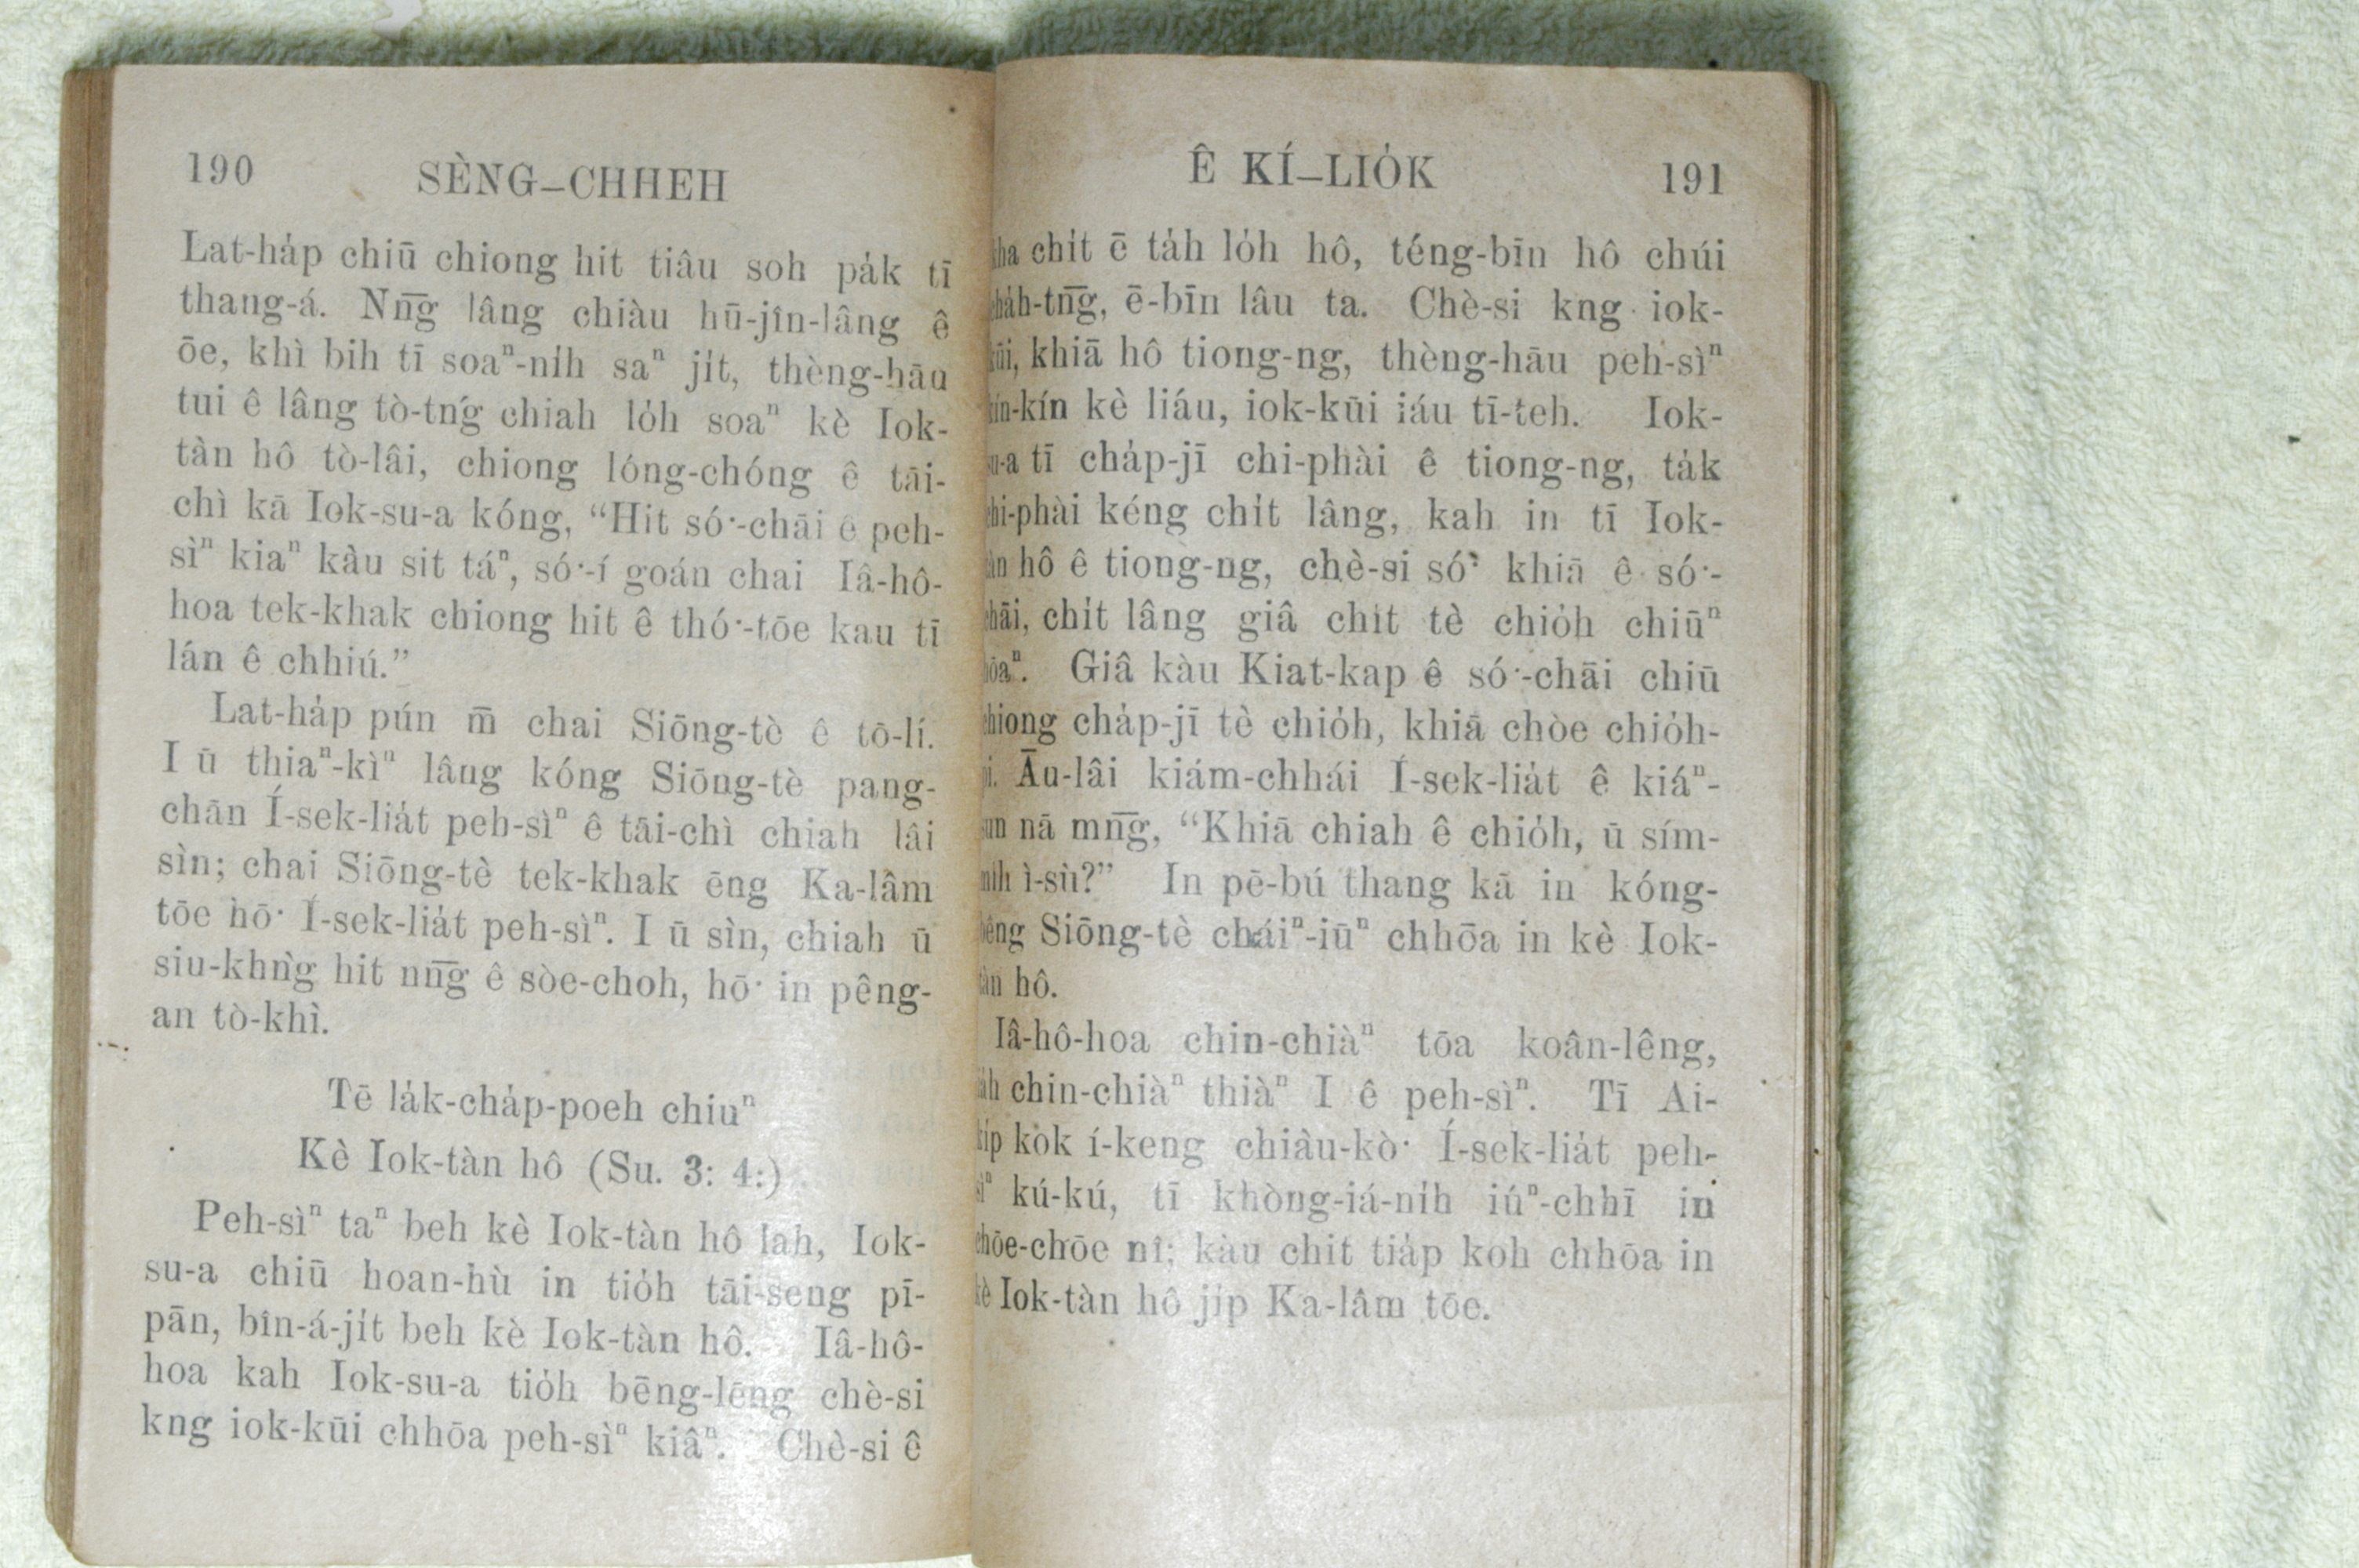 190 SÈNG–CHHEH
Lat-ha̍p chiū chiong hit tiâu soh pa̍k tī
thang-á. Nn̄g lâng chiàu hū-jîn-lâng ê
ōe, khì bih tī soaⁿ-ni̍h saⁿ ji̍t, thèng-hāu
tui ê lâng tò-tńg chiah lo̍h soaⁿ kè Iok-
tàn hô tò-lâi, chiong lóng-chóng ê tāi-
chì kā Iok-su-a kóng, “Hit só͘-chāi ê peh-
sìⁿ kiaⁿ kàu sit táⁿ, só͘-í goán chai Iâ-hô-
hoa tek-khak chiong hit ê thó͘-tōe kau tī
lán ê chhiú.”
Lat-ha̍p pún m̄ chai Siōng-tè ê tō-lí.
I ū thiaⁿ-kìⁿ lâng kóng Siōng-tè pang-
chān Í-sek-lia̍t peh-sìⁿ ê tāi-chì chiah lâi
sìn; chai Siōng-tè tek-khak ēng Ka-lâm
tōe hō͘ Í-sek-lia̍t peh-sìⁿ. I ū sìn, chiah ū
siu-khǹg hit nn̄g ê sòe-choh, hō͘ in pêng-
an tò-khì.
Tē la̍k-cha̍p-poeh chiuⁿ
Kè Iok-tàn hô (Su. 3: 4:)
Peh-sìⁿ taⁿ beh kè Iok-tàn hô lah, Iok-
su-a chiū hoan-hù in tio̍h tāi-seng pī-
pān, bîn-á-ji̍t beh kè Iok-tàn hô. Iâ-hô-
hoa kah Iok-su-a tio̍h bēng-lēng chè-si
kng iok-kūi chhōa peh-sìⁿ kiâⁿ. Chè-si ê
Ê KÍ–LIO̍K 191
kha chi̍t ē ta̍h lo̍h hô, téng-bīn hô chúi
cha̍h-tn̄g, ē-bīn lâu ta. Chè-si kng iok-
kūi, khiā hô tiong-ng, thèng-hāu peh-sìⁿ
kín-kín kè liáu, iok-kūi iáu tī-teh. Iok-
su-a tī cha̍p-jī chi-phài ê tiong-ng, ta̍k
chi-phài kéng chi̍t lâng, kah in tī Iok-
tàn hô ê tiong-ng, chè-si só͘ khiā ê só͘-
chāi, chi̍t lâng giâ chi̍t tè chio̍h chiūⁿ
hōaⁿ. Giâ kàu Kiat-kap ê só͘-chāi chiū
chiong cha̍p-jī tè chio̍h, khiā chòe chio̍h-
pi. Āu-lâi kiám-chhái Í-sek-lia̍t ê kiáⁿ-
sun nā mn̄g, “Khiā chiah ê chio̍h, ū sím-
mi̍h ì-sù?” In pē-bú thang kā in kóng-
bêng Siōng-tè cháiⁿ-iūⁿ chhōa in kè Iok-
tàn hô.
Iâ-hô-hoa chin-chiàⁿ tōa koân-lêng,
ia̍h chin-chiàⁿ thiàⁿ I ê peh-sìⁿ. Tī Ai-
ki̍p kok í-keng chiâu-kò͘ Í-sek-lia̍t peh-
sìⁿ kú-kú, tī khòng-iá-ni̍h iúⁿ-chhī in
chōe-chōe nî; kàu chit tia̍p koh chhōa in
kè Iok-tàn hô ji̍p Ka-lâm tōe.